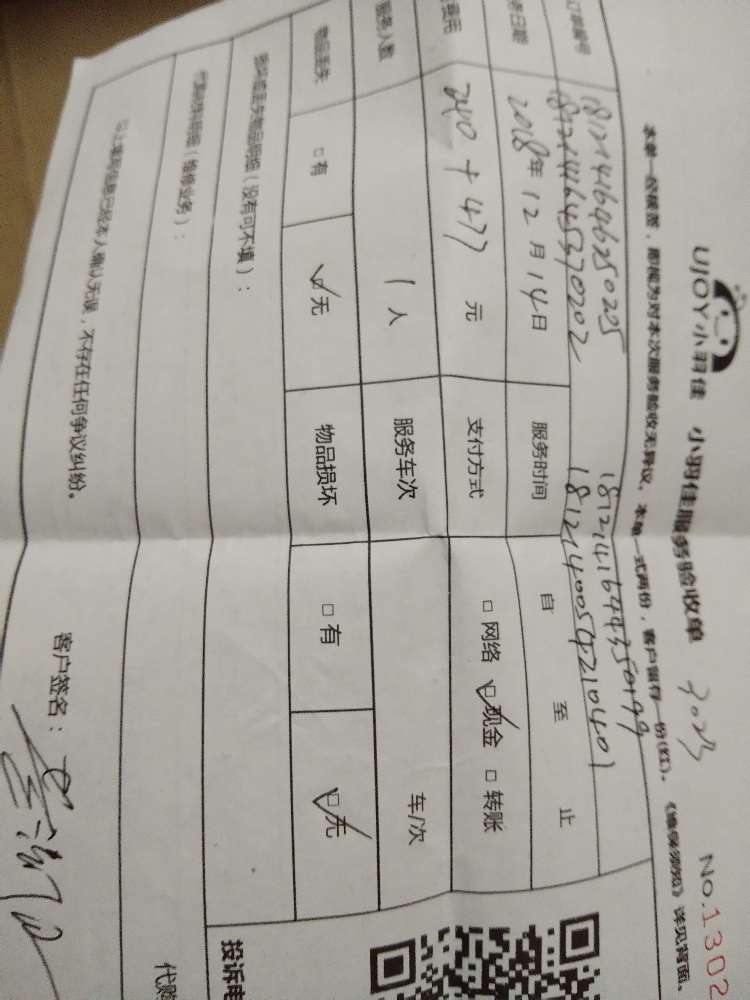 UJOY小羽佳 小羽佳服务验收单 No.1302
本单一经核签，即视为对本次服务验收无异议。本单一式两份，客户留存一份(红)。《维保须知》详见背面。
订单编号
1812141646250205 1812141644350199
1812141645370202 1812140054210401
日期 2018年12月14日 服务时间 自 至 止
费用 240+477 元 支付方式 □网络 ☑现金 □转账
服务人数 1人 服务车次 车/次
物品丢失 □有 ☑无 物品损坏 □有 ☑无
损坏或丢失物品明细（没有可不填）：
代购材料明细（维修业务）：
以上事项信息已经本人确认无误，不存在任何争议纠纷。
客户签名：
投诉电
代购